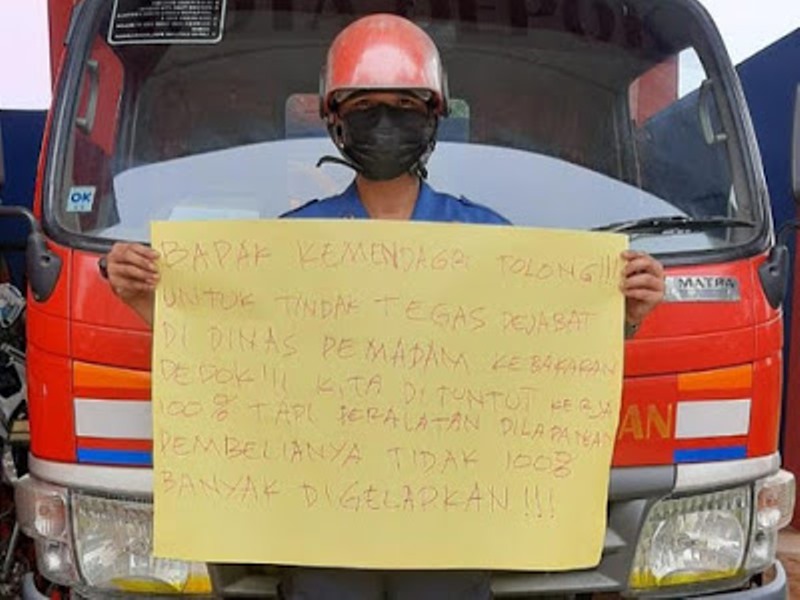 OTA DEPOK
OK
BAPAK KEMENDAGRI TOLONG!!!
UNTUK TINDAK TEGAS PEJABAT
DI DINAS PEMADAM KEBAKARAN
DEPOK!!! KITA DITUNTUT KERJA
100% TAPI PERALATAN DILAPANGAN
PEMBELIANYA TIDAK 100%
BANYAK DIGELAPKAN!!!
MATRA
AN